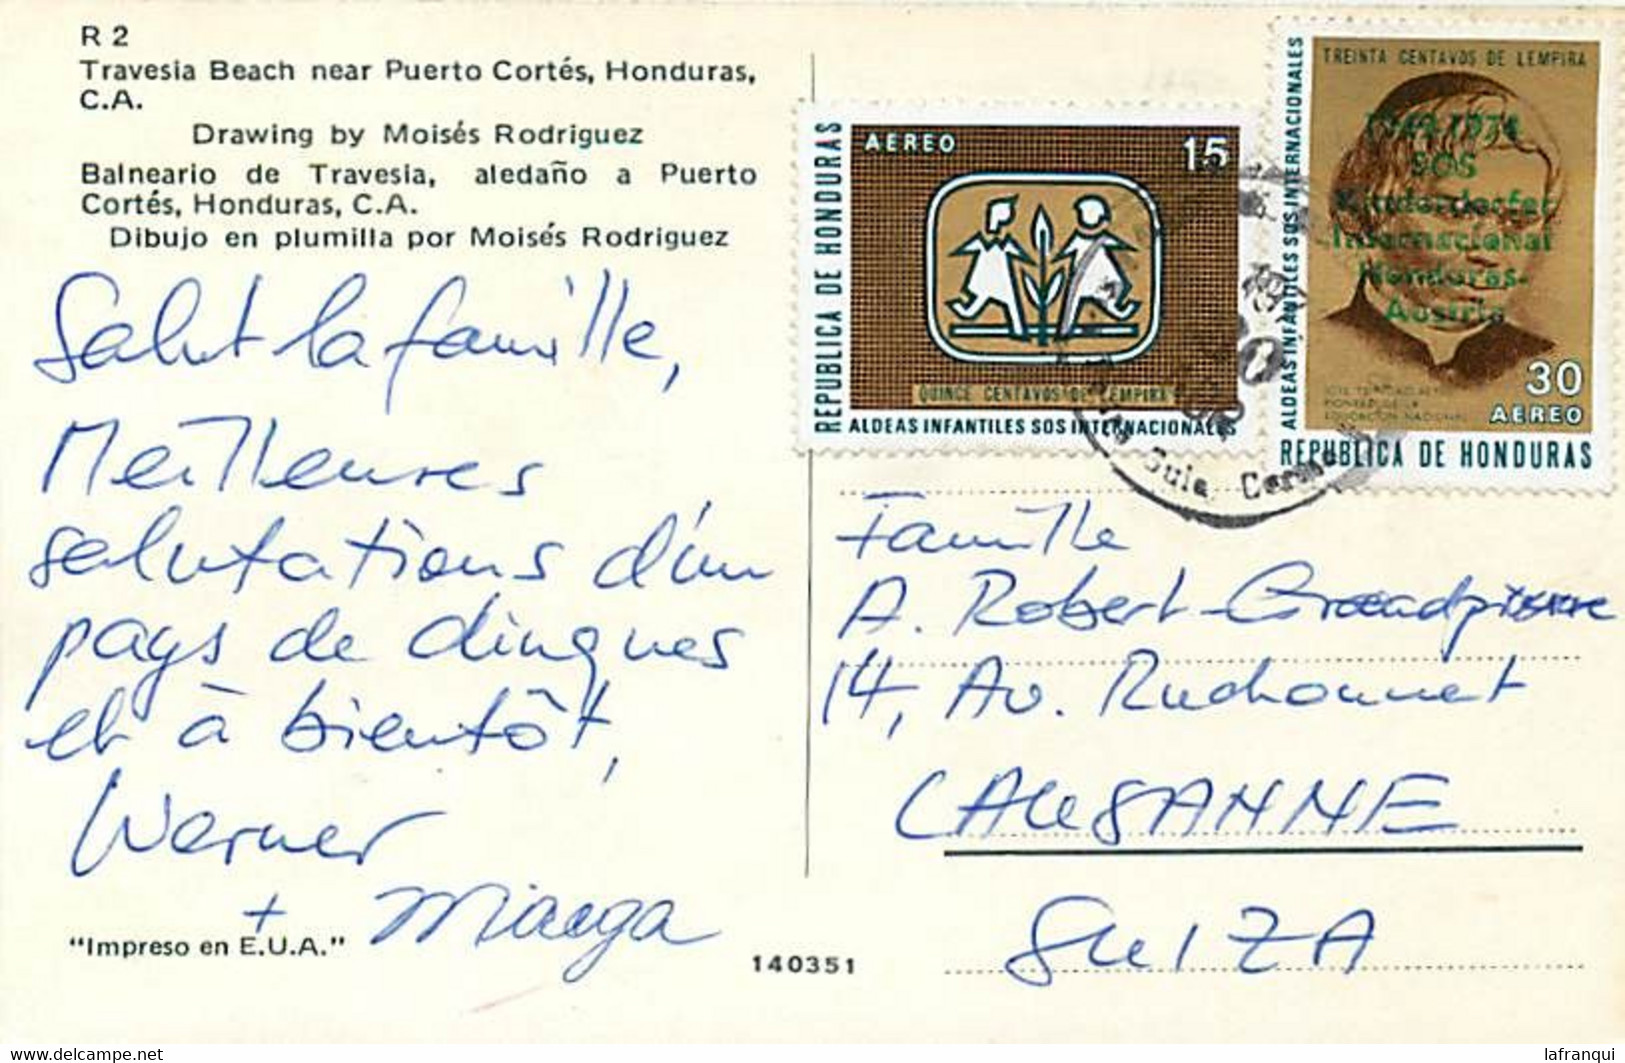 R 2
Travesia Beach near Puerto Cortés, Honduras,
C.A.
Drawing by Moisés Rodriguez
Balneario de Travesia, aledaño a Puerto
Cortés, Honduras, C.A.
Dibujo en plumilla por Moisés Rodriguez
Salut la famille,
Meilleures
salutations d'un
pays de dingues
et à bientôt,
Werner
+
"Impreso en E.U.A."
140351
REPUBLICA DE HONDURAS
AEREO 15
QUINCE CENTAVOS DE LEMPIRA
ALDEAS INFANTILES SOS INTERNACIONALES
ALDEAS INFANTILES SOS INTERNACIONALES
TREINTA CENTAVOS DE LEMPIRA
1949-1974
SOS
Kinderdorfer
Internacional
Honduras-
Austria
30
AEREO
REPUBLICA DE HONDURAS
Sula
Famille
A. Robert-Grandpierre
14, Av. Ruchonnet
LAUSANNE
SUIZA
www.delcampe.net
lafranqui